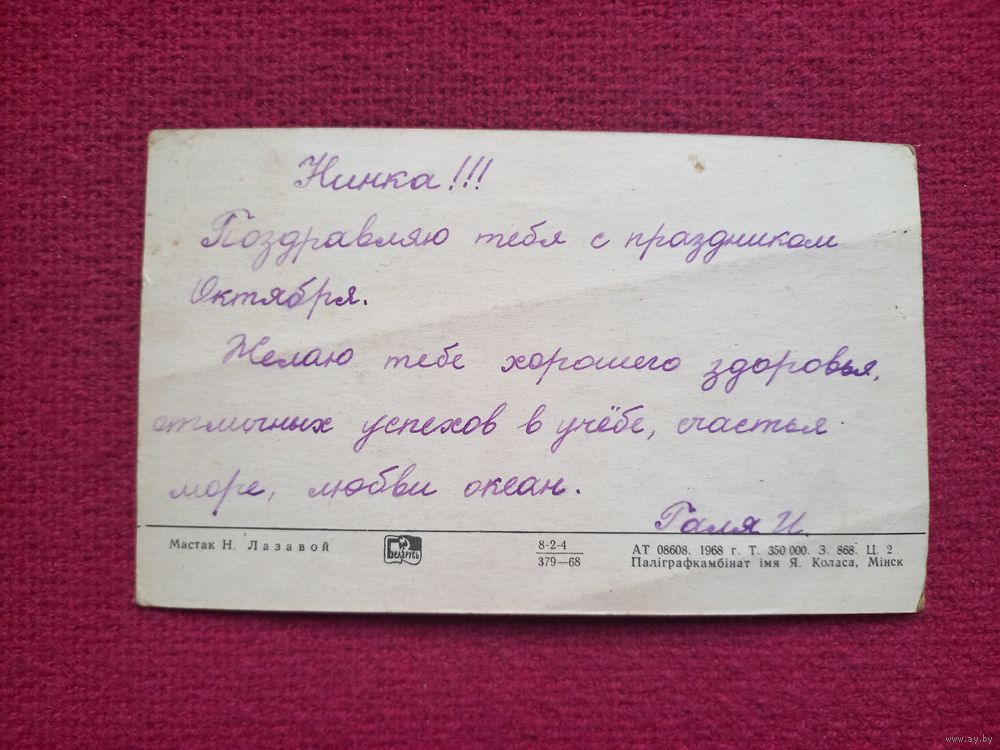 Нинка!!!
Поздравляю тебя с праздником
Октября.
Желаю тебе хорошего здоровья,
отличных успехов в учёбе, счастья
море, любви океан.
Галя И.
Мастак Н. Лазавой
Беларусь
8-2-4
379—68
АТ 08608. 1968 г. Т. 350 000. З. 868. Ц. 2
Паліграфкамбінат імя Я. Коласа, Мінск
www.ay.by